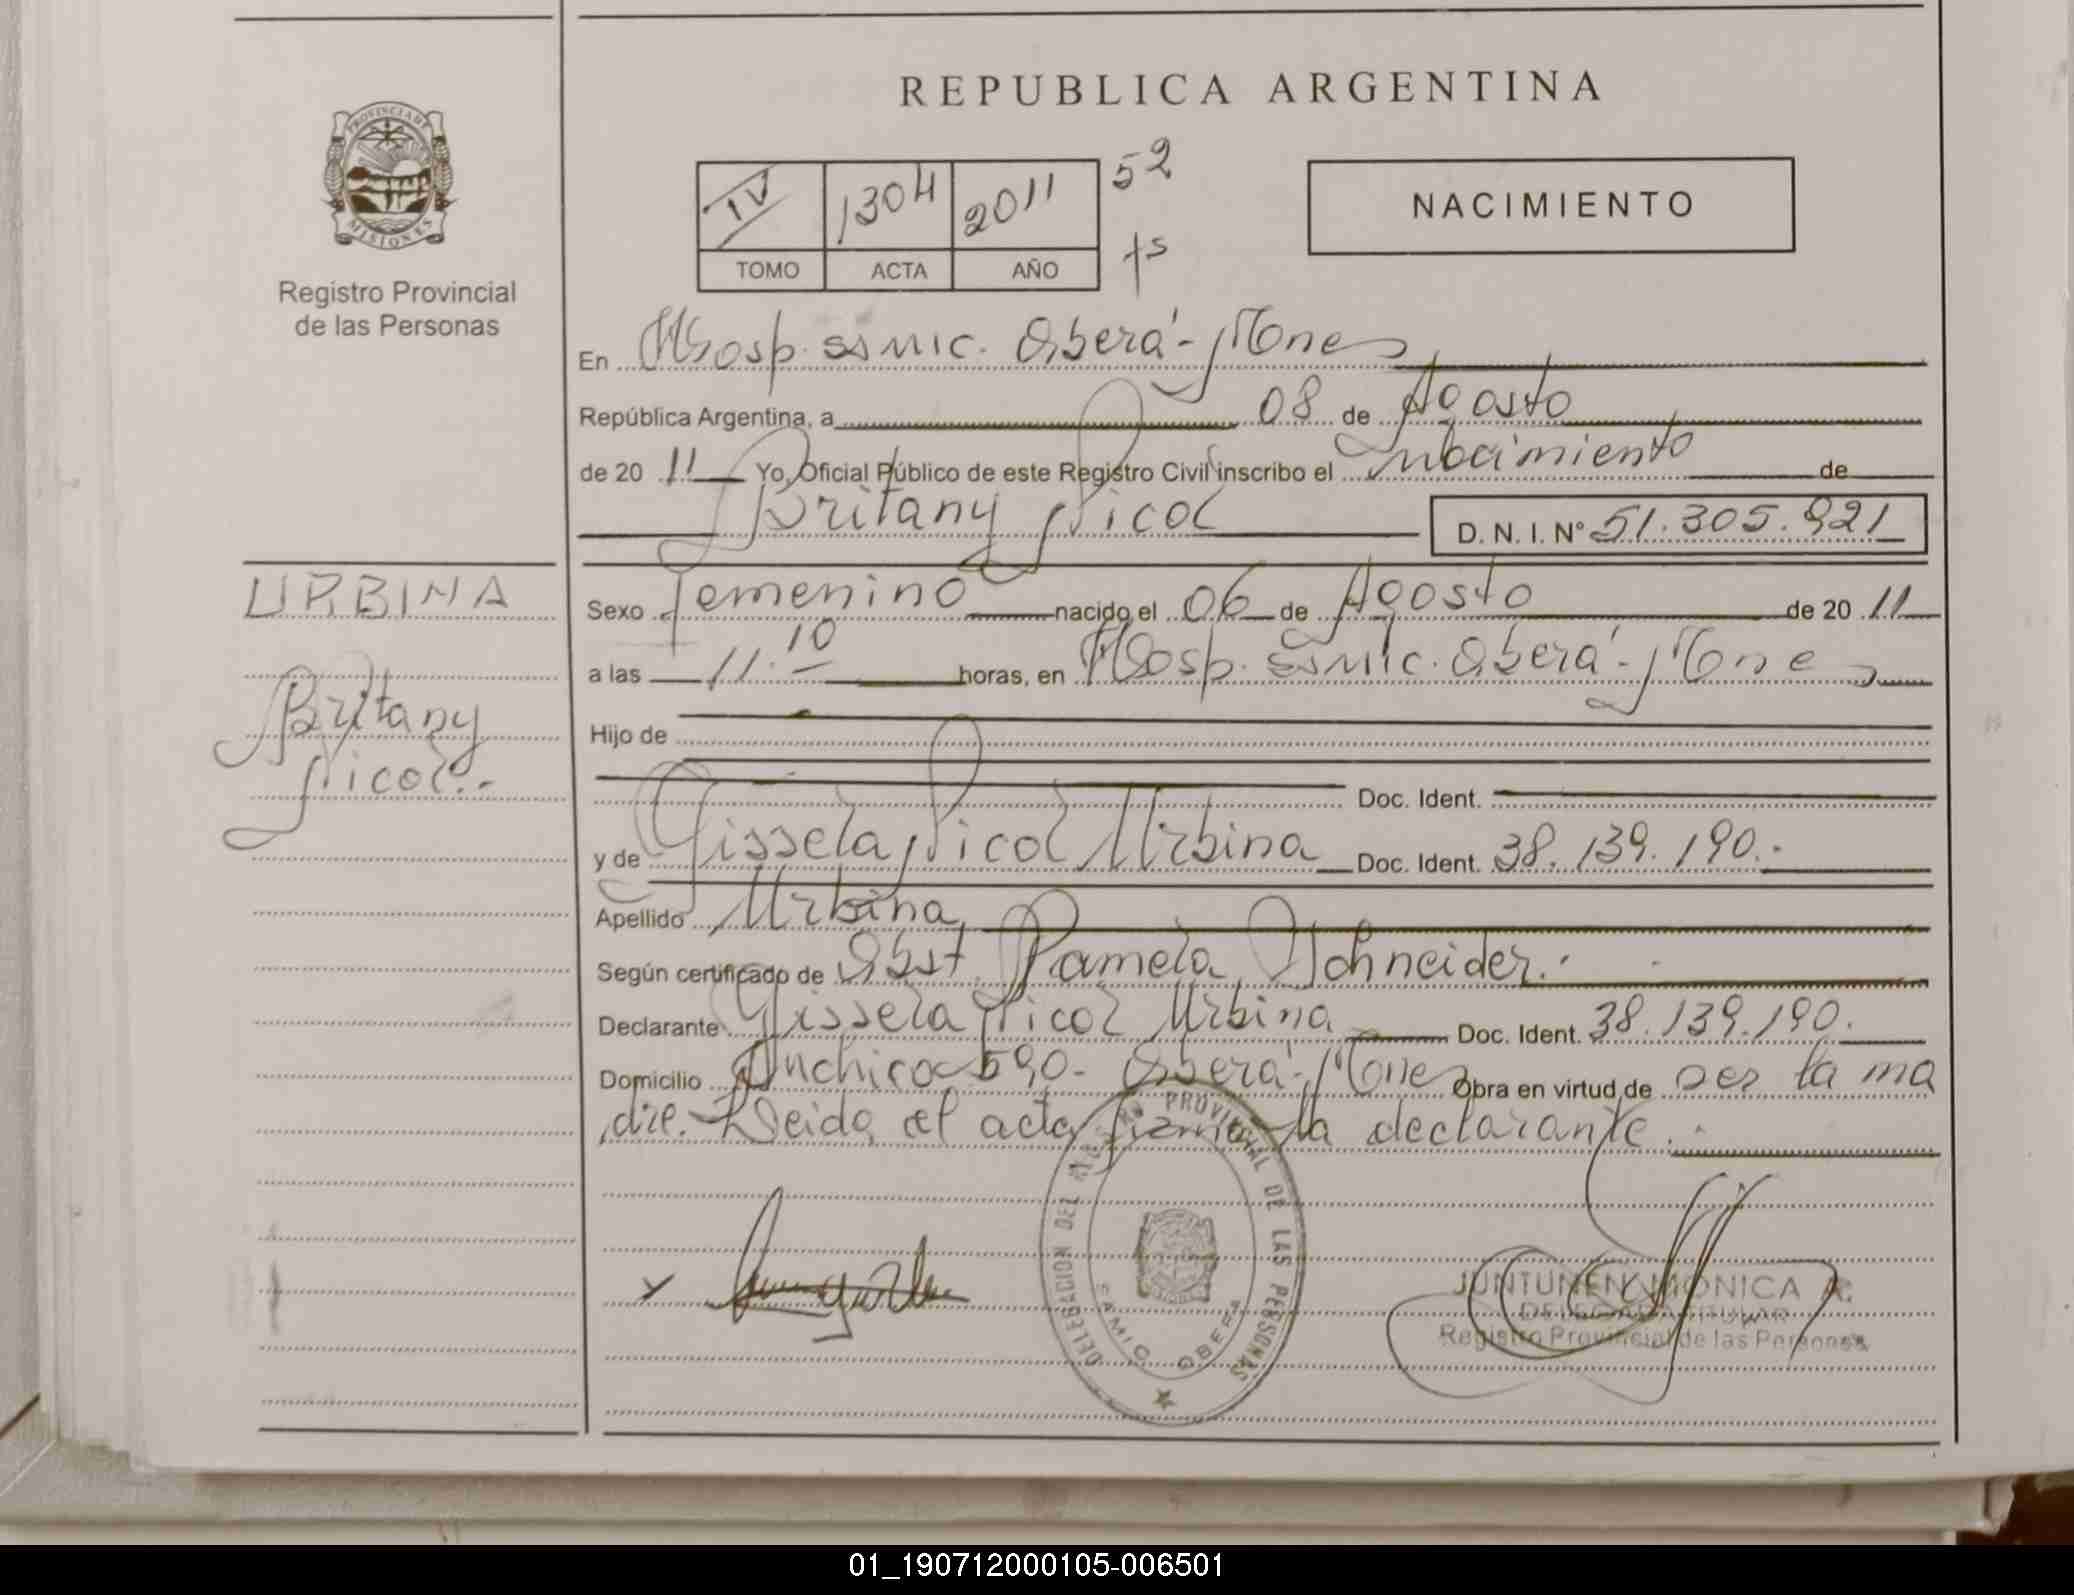 REPUBLICA ARGENTINA
PROVINCIA DE MISIONES
Registro Provincial
de las Personas
IV 1304 2011 52
TOMO ACTA AÑO fs
NACIMIENTO
En Hosp. ssmic. Oberá-Mnes
República Argentina, a 08 de Agosto
de 20 11 Yo, Oficial Público de este Registro Civil inscribo el nacimiento de
Britany Nicol D. N. I. Nº 51.305.921
URBINA
Britany
Nicol.-
Sexo femenino nacido el 06 de Agosto de 20 11
a las 11.10 horas, en Hosp. ssmic. Oberá-Mnes
Hijo de
Doc. Ident.
y de Gissela Nicol Urbina Doc. Ident. 38.139.190.-
Apellido Urbina
Según certificado de Obst. Pamela Schneider.-
Declarante Gissela Nicol Urbina Doc. Ident. 38.139.190.
Domicilio 590- Oberá-Mnes Obra en virtud de ser la ma
dre. Leida el acta firma la declarante.-
DELEGACION DEL REGISTRO PROVINCIAL DE LAS PERSONAS
SAMIC OBERA
JUNTUNEN MONICA A.
DELEGADA TITULAR
Registro Provincial de las Personas
01_190712000105-006501